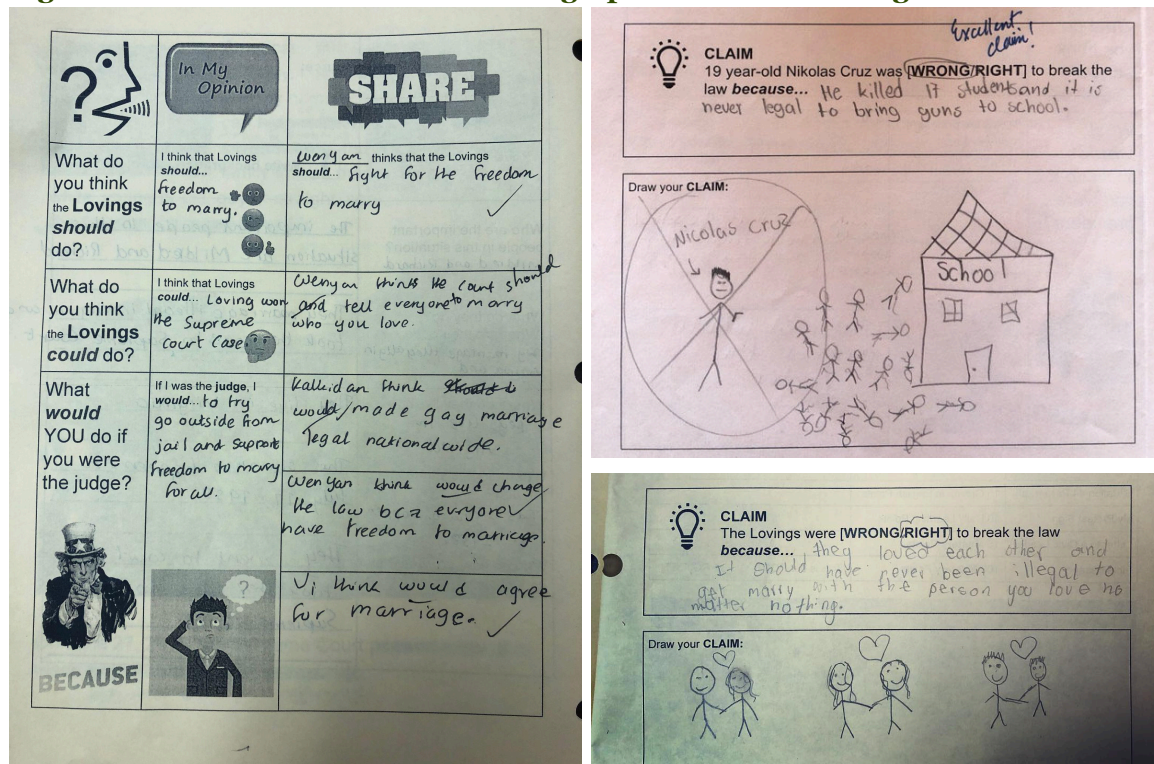 ?
In My
Opinion
SHARE
What do
you think
the Lovings
should
do?
I think that Lovings
should...
freedom
to marry.
wenyan thinks that the Lovings
should... fight for the freedom
to marry
What do
you think
the Lovings
could do?
I think that Lovings
could... Loving won
the Supreme
court case
Wenyan thinks the court should
and tell everyone to marry
who you love.
What
would
YOU do if
you were
the judge?
BECAUSE
If I was the judge, I
would... to try
go outside from
jail and support
freedom to marry
for all.
?
Kalkidan think
would made gay marriage
legal nationalwide.
Wenyan think would change
the law bcz evryone
have freedom to marriage.
Vi think would agree
for marriage.
Excellent
claim!
CLAIM
19 year-old Nikolas Cruz was [WRONG/RIGHT] to break the
law because... He killed 17 students and it is
never legal to bring guns to school.
Draw your CLAIM:
Nicolas Cruz
School
CLAIM
The Lovings were [WRONG/RIGHT] to break the law
because... they loved each other and
It should have never been illegal to
get marry with the person you love no
matter nothing.
Draw your CLAIM: